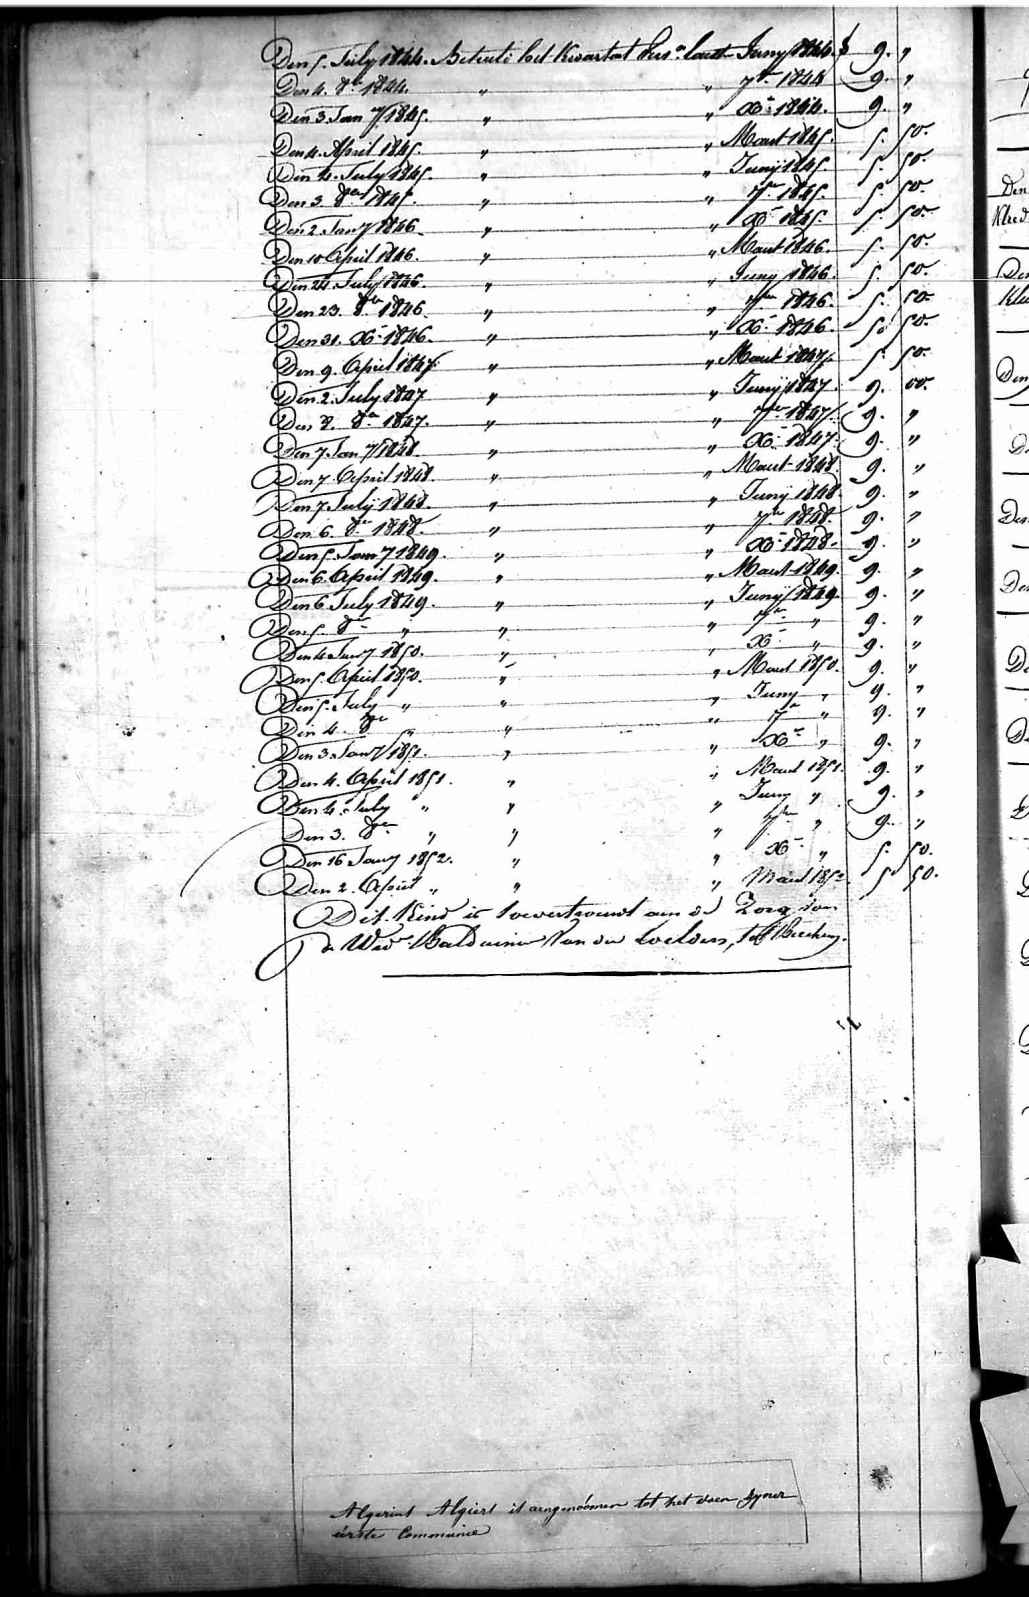 Den 5. July 1844. Betaelt het Kwartaal verso laatst Juny 1844. f 9. "
Den 4. 8re 1844. " " 7re 1844 9. "
Den 3. Jany 1845. " " Xre 1844. 9. "
Den 4. April 1845. " " Maart 1845. 5. 50.
Den 4. July 1845. " " Juny 1845. 5. 50.
Den 3. 8re 1845. " " 7re 1845. 5. 50.
Den 2. Jany 1846. " " Xre 1845. 5. 50.
Den 10 April 1846. " " Maart 1846. 5. 50.
Den 24. July 1846. " " Juny 1846. 5. 50.
Den 23. 8re 1846. " " 7re 1846. 5. 50.
Den 31. Xre 1846. " " Xre 1846. 5. 50.
Den 9. April 1847. " " Maart 1847. 5. 50.
Den 2. July 1847 " " Juny 1847. 9. 00.
Den 8. 8re 1847. " " 7re 1847. 9. "
Den 7 Jany 1848. " " Xre 1847. 9. "
Den 7. April 1848. " " Maart 1848. 9. "
Den 7. July 1848. " " Juny 1848. 9. "
Den 6. 8re 1848. " " 7re 1848. 9. "
Den 5. Jany 1849. " " Xre 1848. 9. "
Den 6. April 1849. " " Maart 1849. 9. "
Den 6. July 1849. " " Juny 1849. 9. "
Den 5. 8re " " " 7re " 9. "
Den 4 Jany 1850. " " Xre " 9. "
Den 5. April 1850. " " Maart 1850. 9. "
Den 5. July " " " Juny " 9. "
Den 4. 8re " " " 7re " 9. "
Den 3. Jany 1851. " " Xre " 9. "
Den 4. April 1851. " " Maart 1851. 9. "
Den 4. July " " " Juny " 9. "
Den 3. 8re " " " 7re " 9. "
Den 16 Jany 1852. " " Xre " 5. 50.
Den 2. April " " " Maart 1852 5 50.
Dit Kind is toevertrouwt aen de Zorg van
de Wed. Balduinus Van der
Algerint Algiers is aengenomen tot het doen zyner
eerste Communie
Den
Den
Den
Den